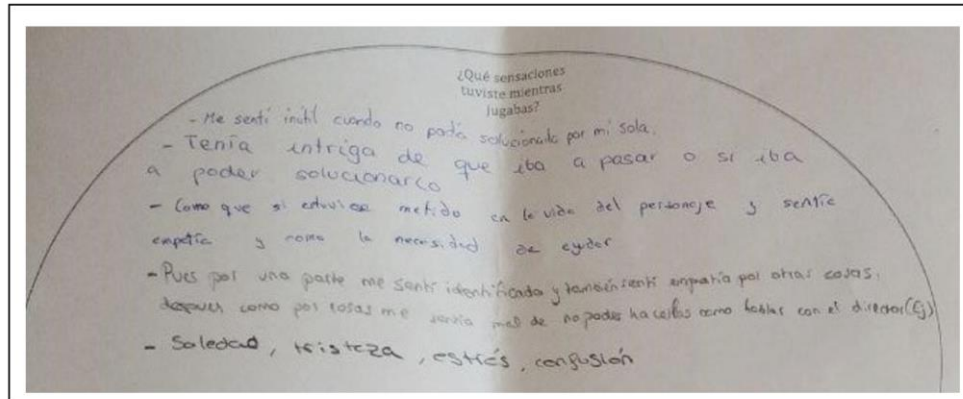 ¿Qué sensaciones
tuviste mientras
jugabas?
- Me sentí inútil cuando no podía solucionarlo por mi sola.
- Tenía intriga de que iba a pasar o si iba
a poder solucionarlo
- Como que si estuviese metido en la vida del personaje y sentía
empatía y como la necesidad de ayudar
- Pues por una parte me sentí identificada y también sentí empatía por otras cosas,
después como por cosas me sentía mal de no poder hacerlas como hablar con el director (Ej)
- Soledad, tristeza, estrés, confusión